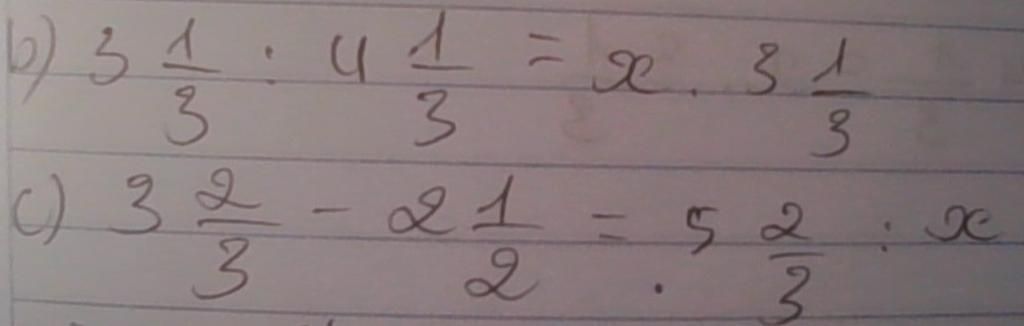 b) 3 1/3 : 4 1/3 = x . 3 1/3
c) 3 2/3 - 2 1/2 = 5 2/3 : x